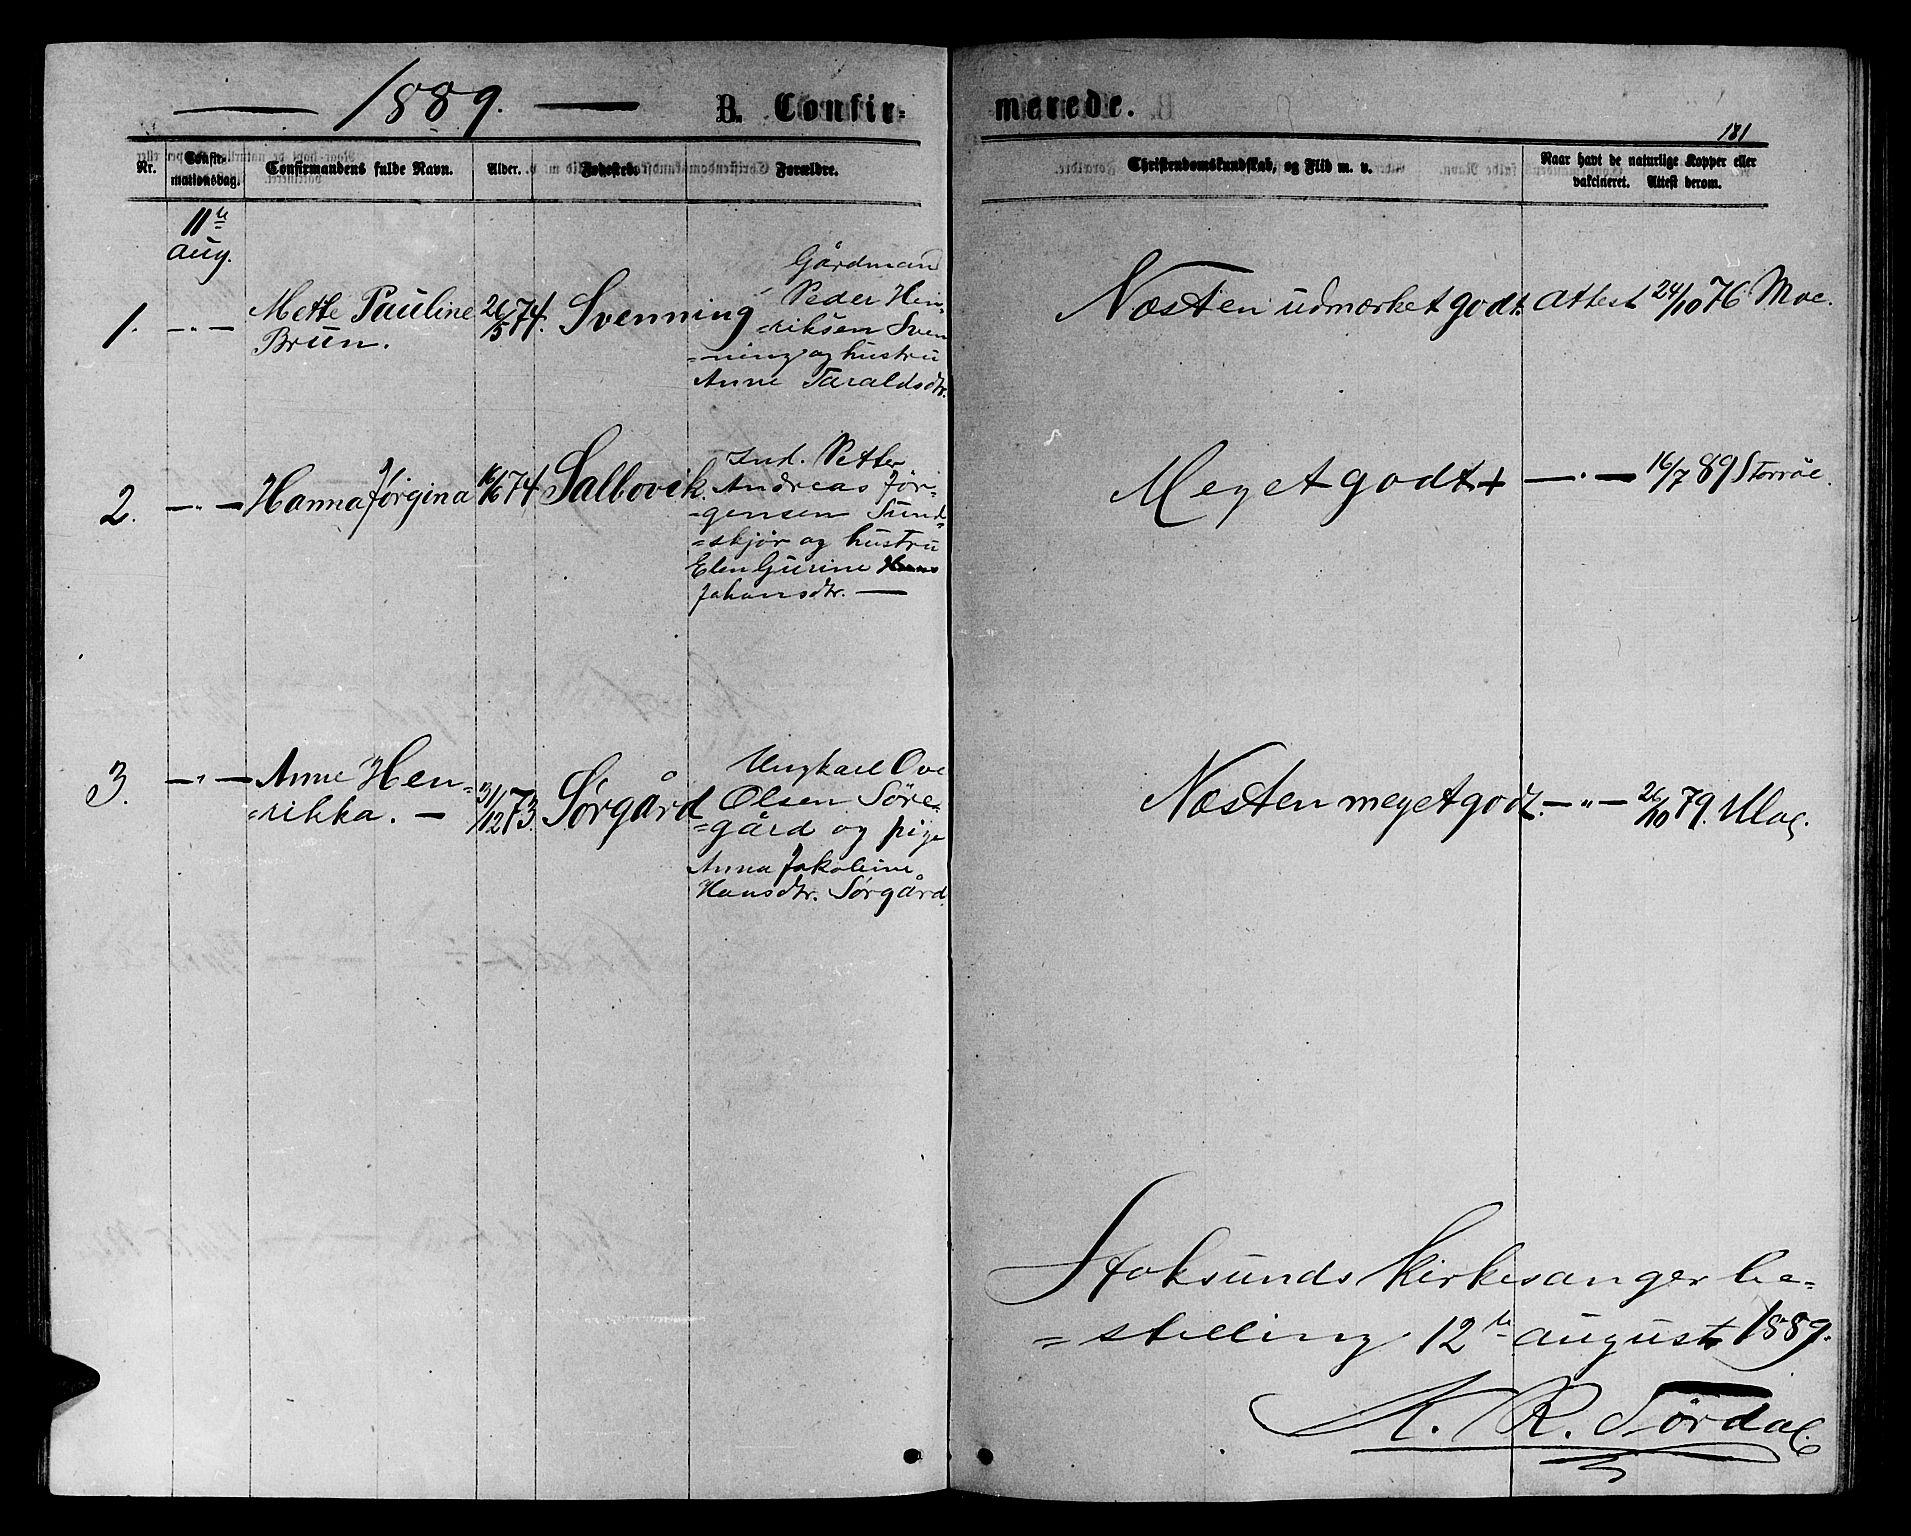 1889. B. Confir-
merede.
181
Nr.
Confir-
mationsdag.
Confirmandens fulde Navn.
Alder.
Fødested.
Forældre.
Christendomskundskab, og Flid m. v.
Naar havt de naturlige Kopper eller
vakcineret. Attest derom.
11te
Aug.
1. -"- Mette Pauline
Brun.
26/5 74. Svenning
Gårdmand
Peder Hen-
=riksen Sven
=ning og hustru
Anne Taraldsdtr.
Næsten udmærket godt. Attest 24/10 76 Moe.
2. -"- Hanna Jørgina 16/6 74 Salbovik.
Ind. Petter
Andreas Jør-
-gensen Sund-
=skjør og hustru
Elen Gurine
Johansdtr. —
Meget godt + -"- 16/7 89 Storrøe.
3. -"- Anne Hen-
=rikka. — 31/12 73. Sørgård
Ungkarl Ove
Olsen Søre-
=gård og pige
Anna Jakobine
Hansdtr. Sørgård.
Næsten meget godt. -"- 26/10 79. Moe.
Stoksunds Kirkesanger be-
=stilling 12te august 1889.
K. R. Sørdal.